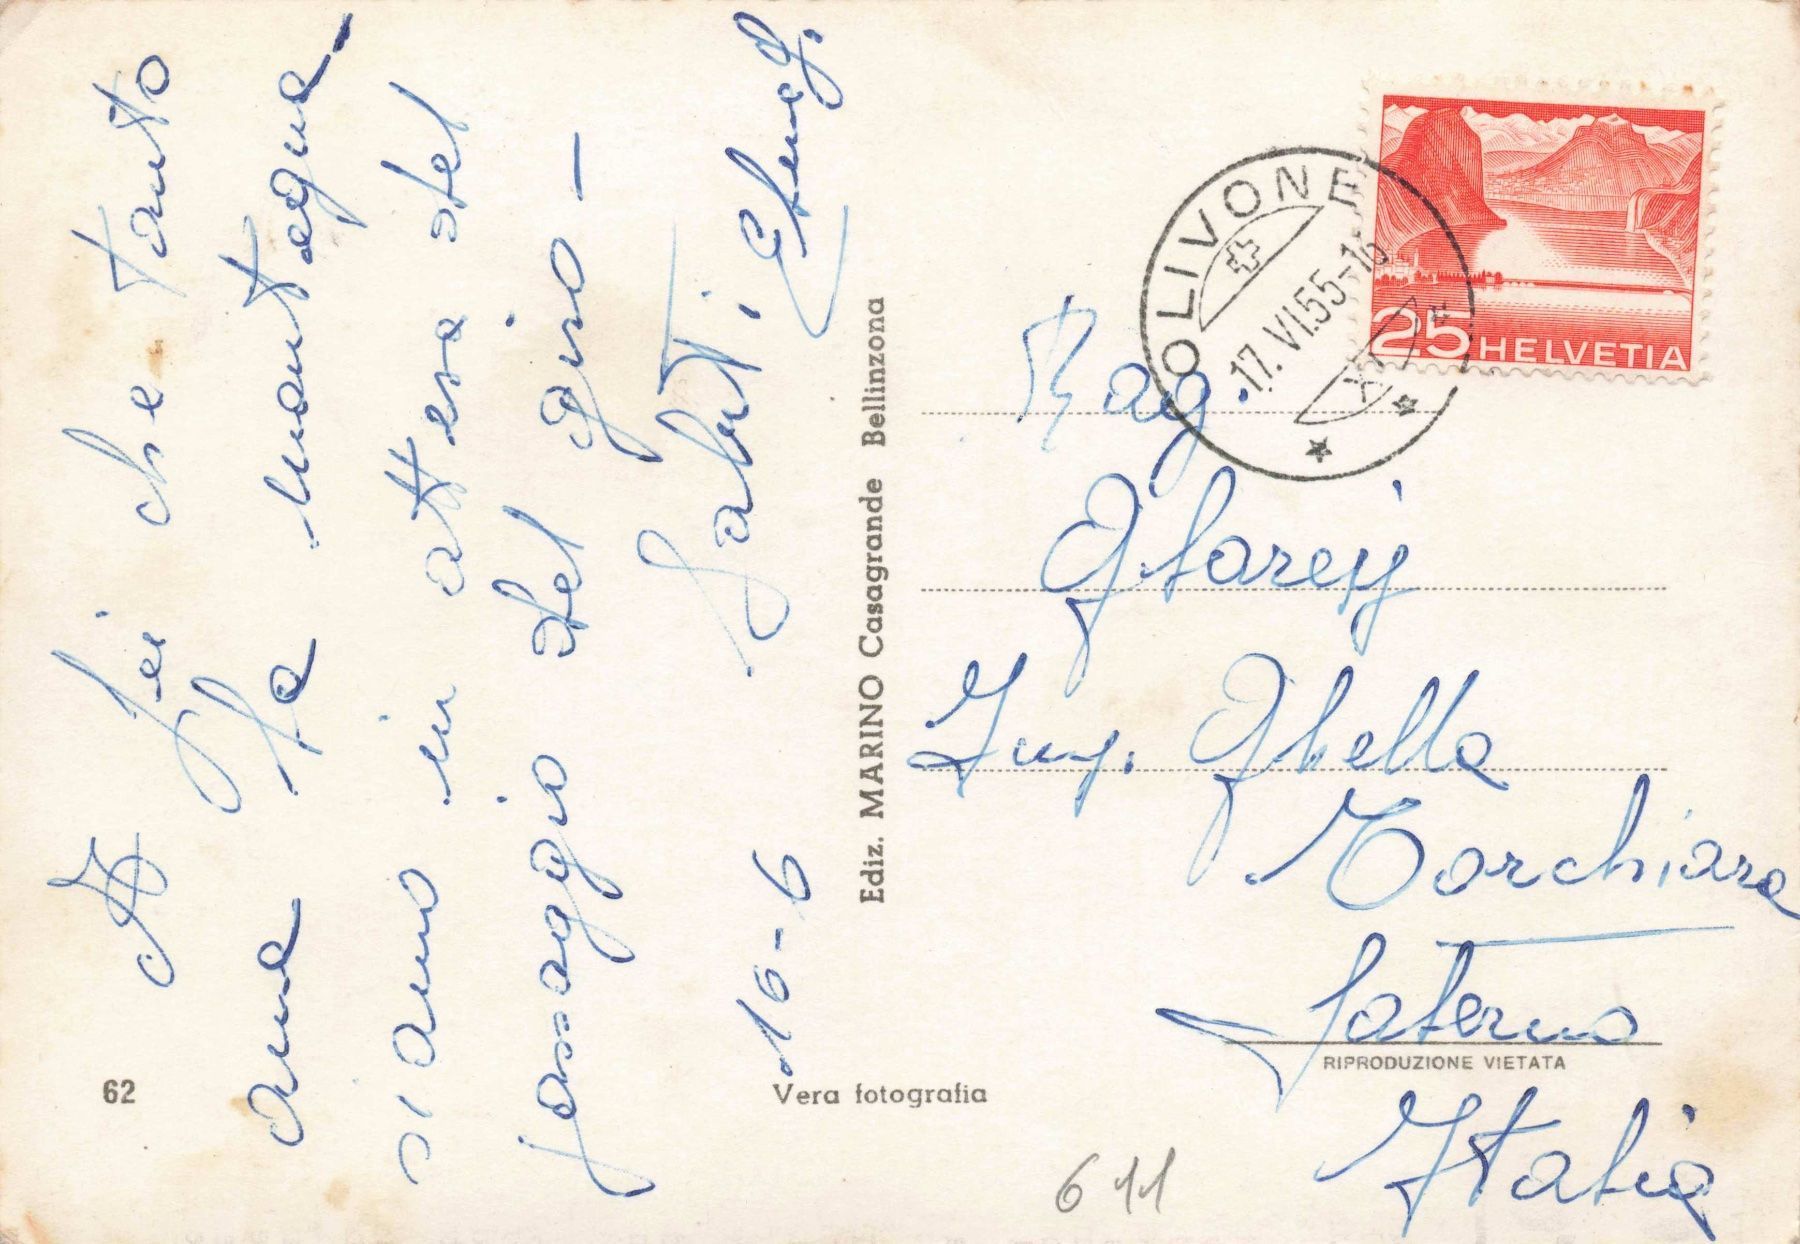 A lei che tanto
ama la montagna
siamo in attesa del
passaggio del giro -
Saluti,
16-6
62
Vera fotografia
Ediz. MARINO Casagrande Bellinzona
OLIVONE
17. VI.55-18
XI
25 HELVETIA
Rag.
Ing. Ghella
Torchiara
Salerno
RIPRODUZIONE VIETATA
Italia
611